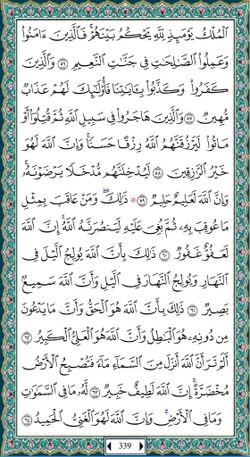 ٱلْمُلْكُ يَوْمَئِذٍ لِّلَّهِ يَحْكُمُ بَيْنَهُمْ ۚ فَٱلَّذِينَ ءَامَنُوا۟
وَعَمِلُوا۟ ٱلصَّـٰلِحَـٰتِ فِى جَنَّـٰتِ ٱلنَّعِيمِ ٥٦ وَٱلَّذِينَ
كَفَرُوا۟ وَكَذَّبُوا۟ بِـَٔايَـٰتِنَا فَأُو۟لَـٰٓئِكَ لَهُمْ عَذَابٌ
مُّهِينٌ ٥٧ وَٱلَّذِينَ هَاجَرُوا۟ فِى سَبِيلِ ٱللَّهِ ثُمَّ قُتِلُوٓا۟ أَوْ
مَاتُوا۟ لَيَرْزُقَنَّهُمُ ٱللَّهُ رِزْقًا حَسَنًا ۚ وَإِنَّ ٱللَّهَ لَهُوَ
خَيْرُ ٱلرَّٰزِقِينَ ٥٨ لَيُدْخِلَنَّهُم مُّدْخَلًا يَرْضَوْنَهُۥ ۗ
وَإِنَّ ٱللَّهَ لَعَلِيمٌ حَلِيمٌ ٥٩ ۞ ذَٰلِكَ وَمَنْ عَاقَبَ بِمِثْلِ
مَا عُوقِبَ بِهِۦ ثُمَّ بُغِىَ عَلَيْهِ لَيَنصُرَنَّهُ ٱللَّهُ ۗ إِنَّ ٱللَّهَ
لَعَفُوٌّ غَفُورٌ ٦٠ ذَٰلِكَ بِأَنَّ ٱللَّهَ يُولِجُ ٱلَّيْلَ فِى
ٱلنَّهَارِ وَيُولِجُ ٱلنَّهَارَ فِى ٱلَّيْلِ وَأَنَّ ٱللَّهَ سَمِيعٌۢ
بَصِيرٌ ٦١ ذَٰلِكَ بِأَنَّ ٱللَّهَ هُوَ ٱلْحَقُّ وَأَنَّ مَا يَدْعُونَ
مِن دُونِهِۦ هُوَ ٱلْبَـٰطِلُ وَأَنَّ ٱللَّهَ هُوَ ٱلْعَلِىُّ ٱلْكَبِيرُ ٦٢
أَلَمْ تَرَ أَنَّ ٱللَّهَ أَنزَلَ مِنَ ٱلسَّمَآءِ مَآءً فَتُصْبِحُ ٱلْأَرْضُ
مُخْضَرَّةً ۗ إِنَّ ٱللَّهَ لَطِيفٌ خَبِيرٌ ٦٣ لَّهُۥ مَا فِى ٱلسَّمَـٰوَٰتِ
وَمَا فِى ٱلْأَرْضِ ۗ وَإِنَّ ٱللَّهَ لَهُوَ ٱلْغَنِىُّ ٱلْحَمِيدُ ٦٤
339